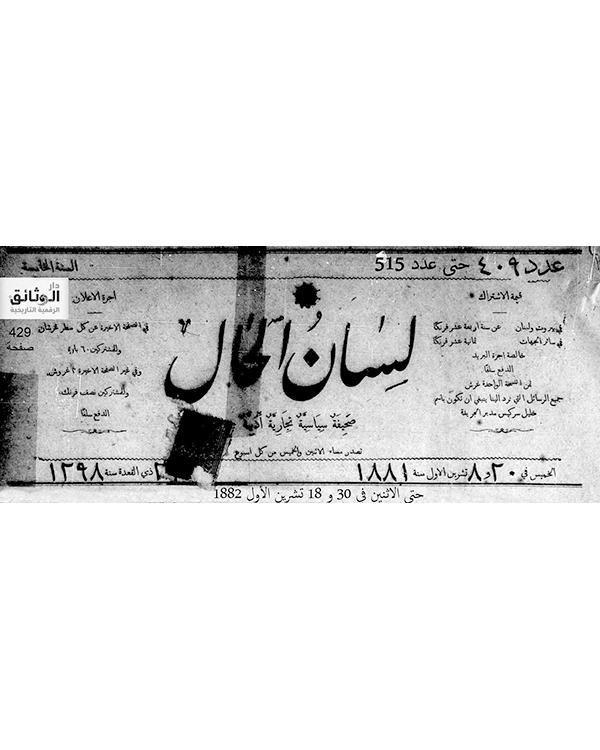 السنة الخامسة
عدد ٤٠٩ حتى عدد 515
دار
الوثائق
الرقمية التاريخية
429
صفحة
قيمة الاشتراك
في بيروت ولبنان عن سنة اربعة عشر فرنكا
في سائر الجهات ثمانية عشر فرنكا
خالصة اجرة البريد
الدفع سلفا
ثمن النسخة الواحدة غرش
جميع الرسائل التي ترد الينا ينبغي ان تكون باسم
خليل سركيس مدير الجريدة
لسان الحال
صحيفة سياسية تجارية أدبية
تصدر مساء الاثنين والخميس من كل اسبوع
اجرة الاعلان
في الصفحة الاخيرة عن كل سطر غرشان
وللمشتركين ٦٠ بارة
وفي غير الصفحة الاخيرة ٤ غروش
وللمشتركين نصف فرنك
الدفع سلفا
الخميس في ٢٠ و ٨ تشرين الاول سنة ١٨٨١
ذي القعدة سنة ١٢٩٨
حتى الاثنين في 30 و 18 تشرين الأول 1882